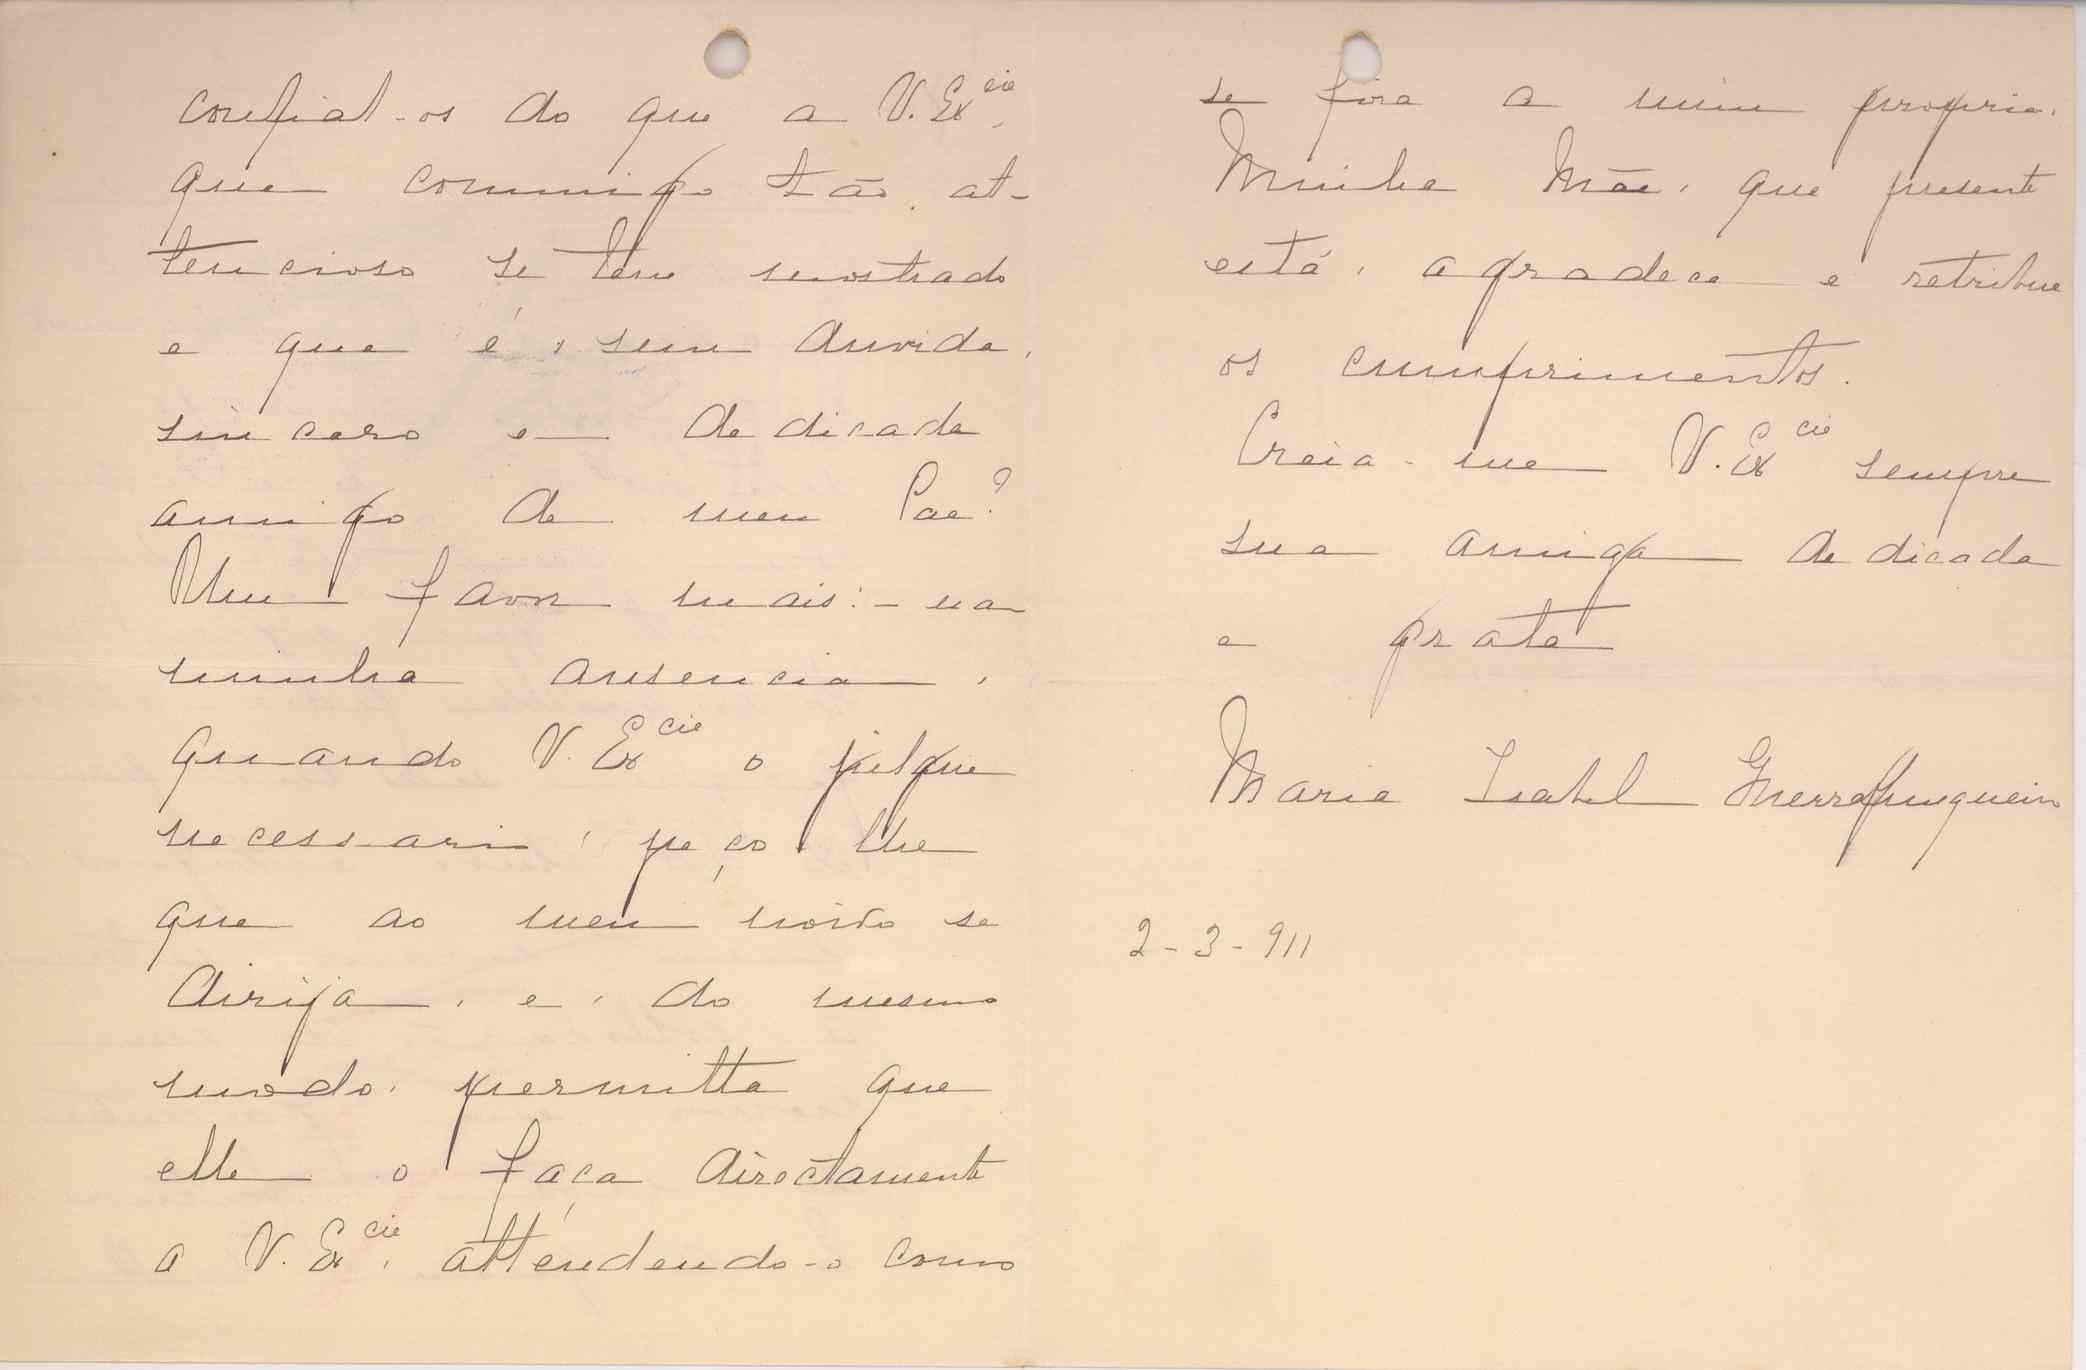 confial-os do que a V. Ex.cia
que commigo tão at-
tencioso se tem mostrado
e que é, sem duvida,
sincero e dedicado
amigo de meu Pae?
Um favor mais: - na
minha ausencia,
quando V. Excia o julgue
necessario, peço lhe
que ao meu noivo se
dirija, e, do mesmo
modo, permitta que
elle o faça directamente
a V. Excia, attendendo-o como
se fôra a mim propria.
Minha Mãe, que presente
está, agradece e retribue
os cumprimentos.
Creia-me V. Excia sempre
sua amiga dedicada
e grata
Maria Isabel Guerra Junqueiro
2-3-911